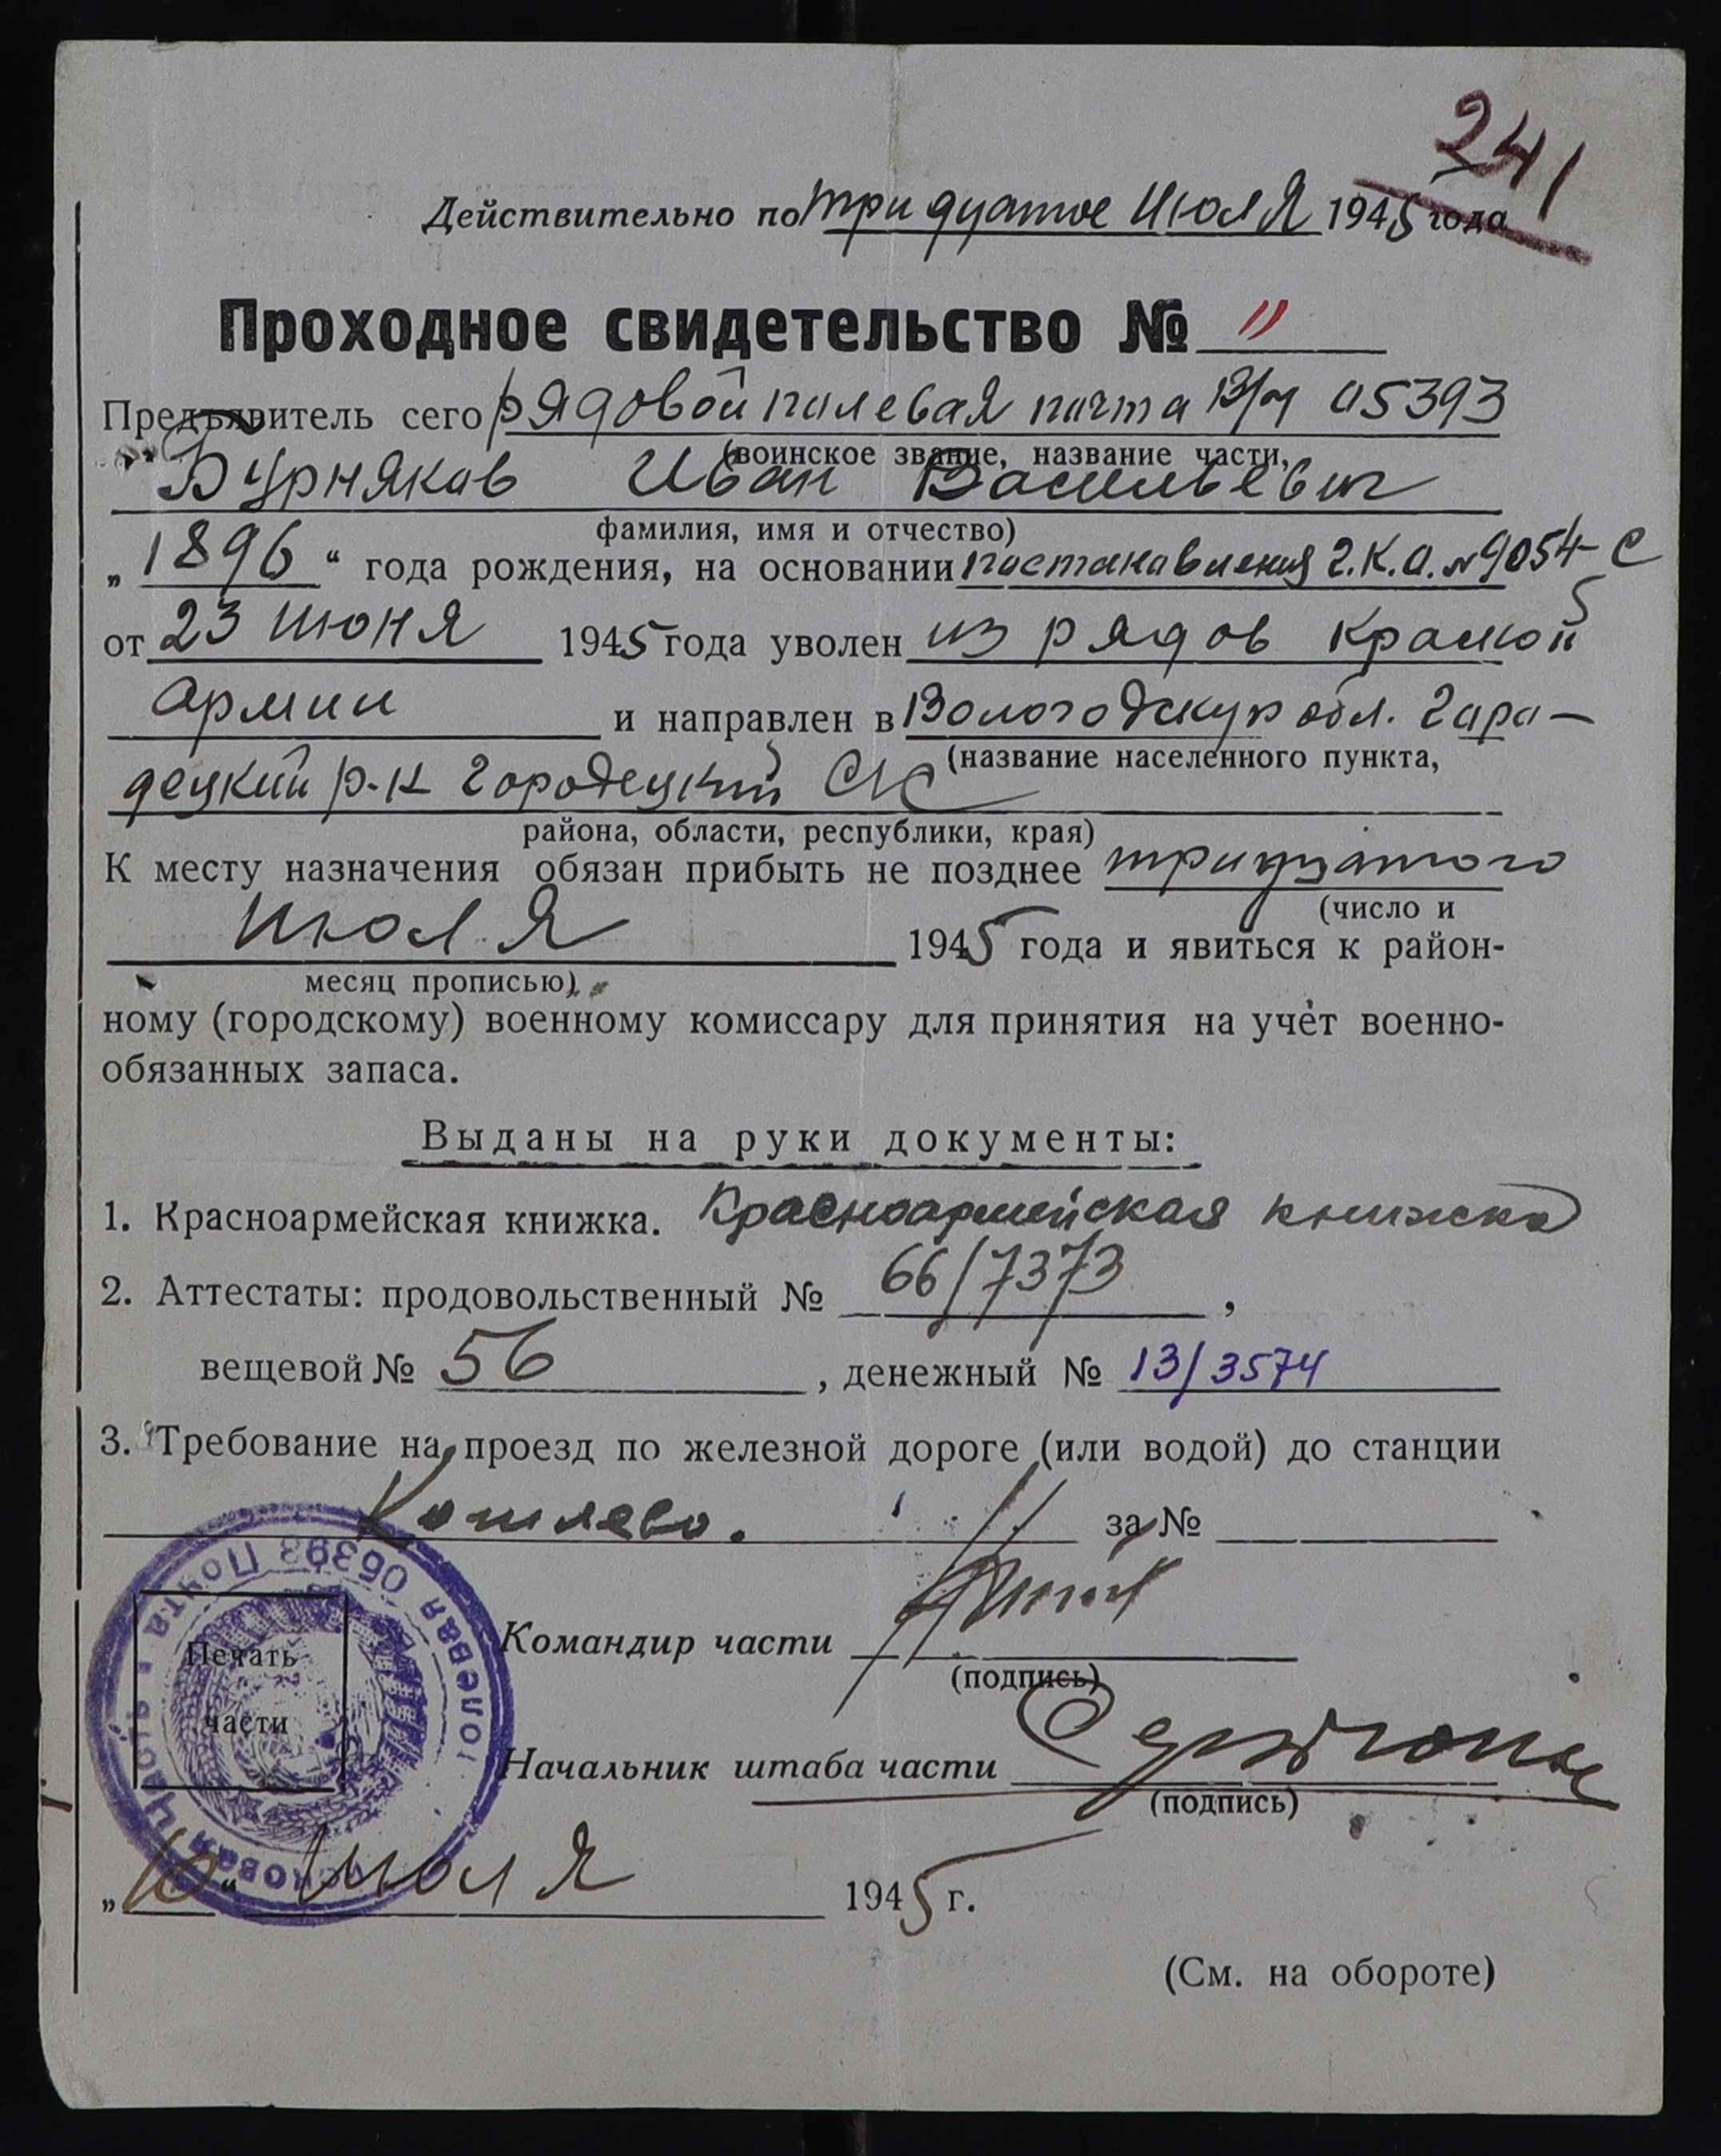 241
Действительно по тридцатое Июля 1945 года
Проходное свидетельство № 11
Предъявитель сего рядовой полевая почта В/Ч 05393
(воинское звание, название части,
Бурняков Иван Васильевич
фамилия, имя и отчество)
„1896“ года рождения, на основании постановления Г.К.О. №9054-С
от 23 июня 1945 года уволен из рядов Красной
армии и направлен в Вологодскую обл. Горо-
(название населенного пункта,
децкий р-н Городецкий С/С
района, области, республики, края)
К месту назначения обязан прибыть не позднее тридцатого
(число и
Июля 1945 года и явиться к район-
месяц прописью)
ному (городскому) военному комиссару для принятия на учёт военно-
обязанных запаса.
Выданы на руки документы:
1. Красноармейская книжка. Красноармейская книжка
2. Аттестаты: продовольственный № 66/7373,
вещевой № 56, денежный № 13/3574
3. Требование на проезд по железной дороге (или водой) до станции
за №
Полевая Почта 05393
Печать
части
Командир части
(подпись)
Начальник штаба части
(подпись)
„10“ Июля 1945 г.
(См. на обороте)